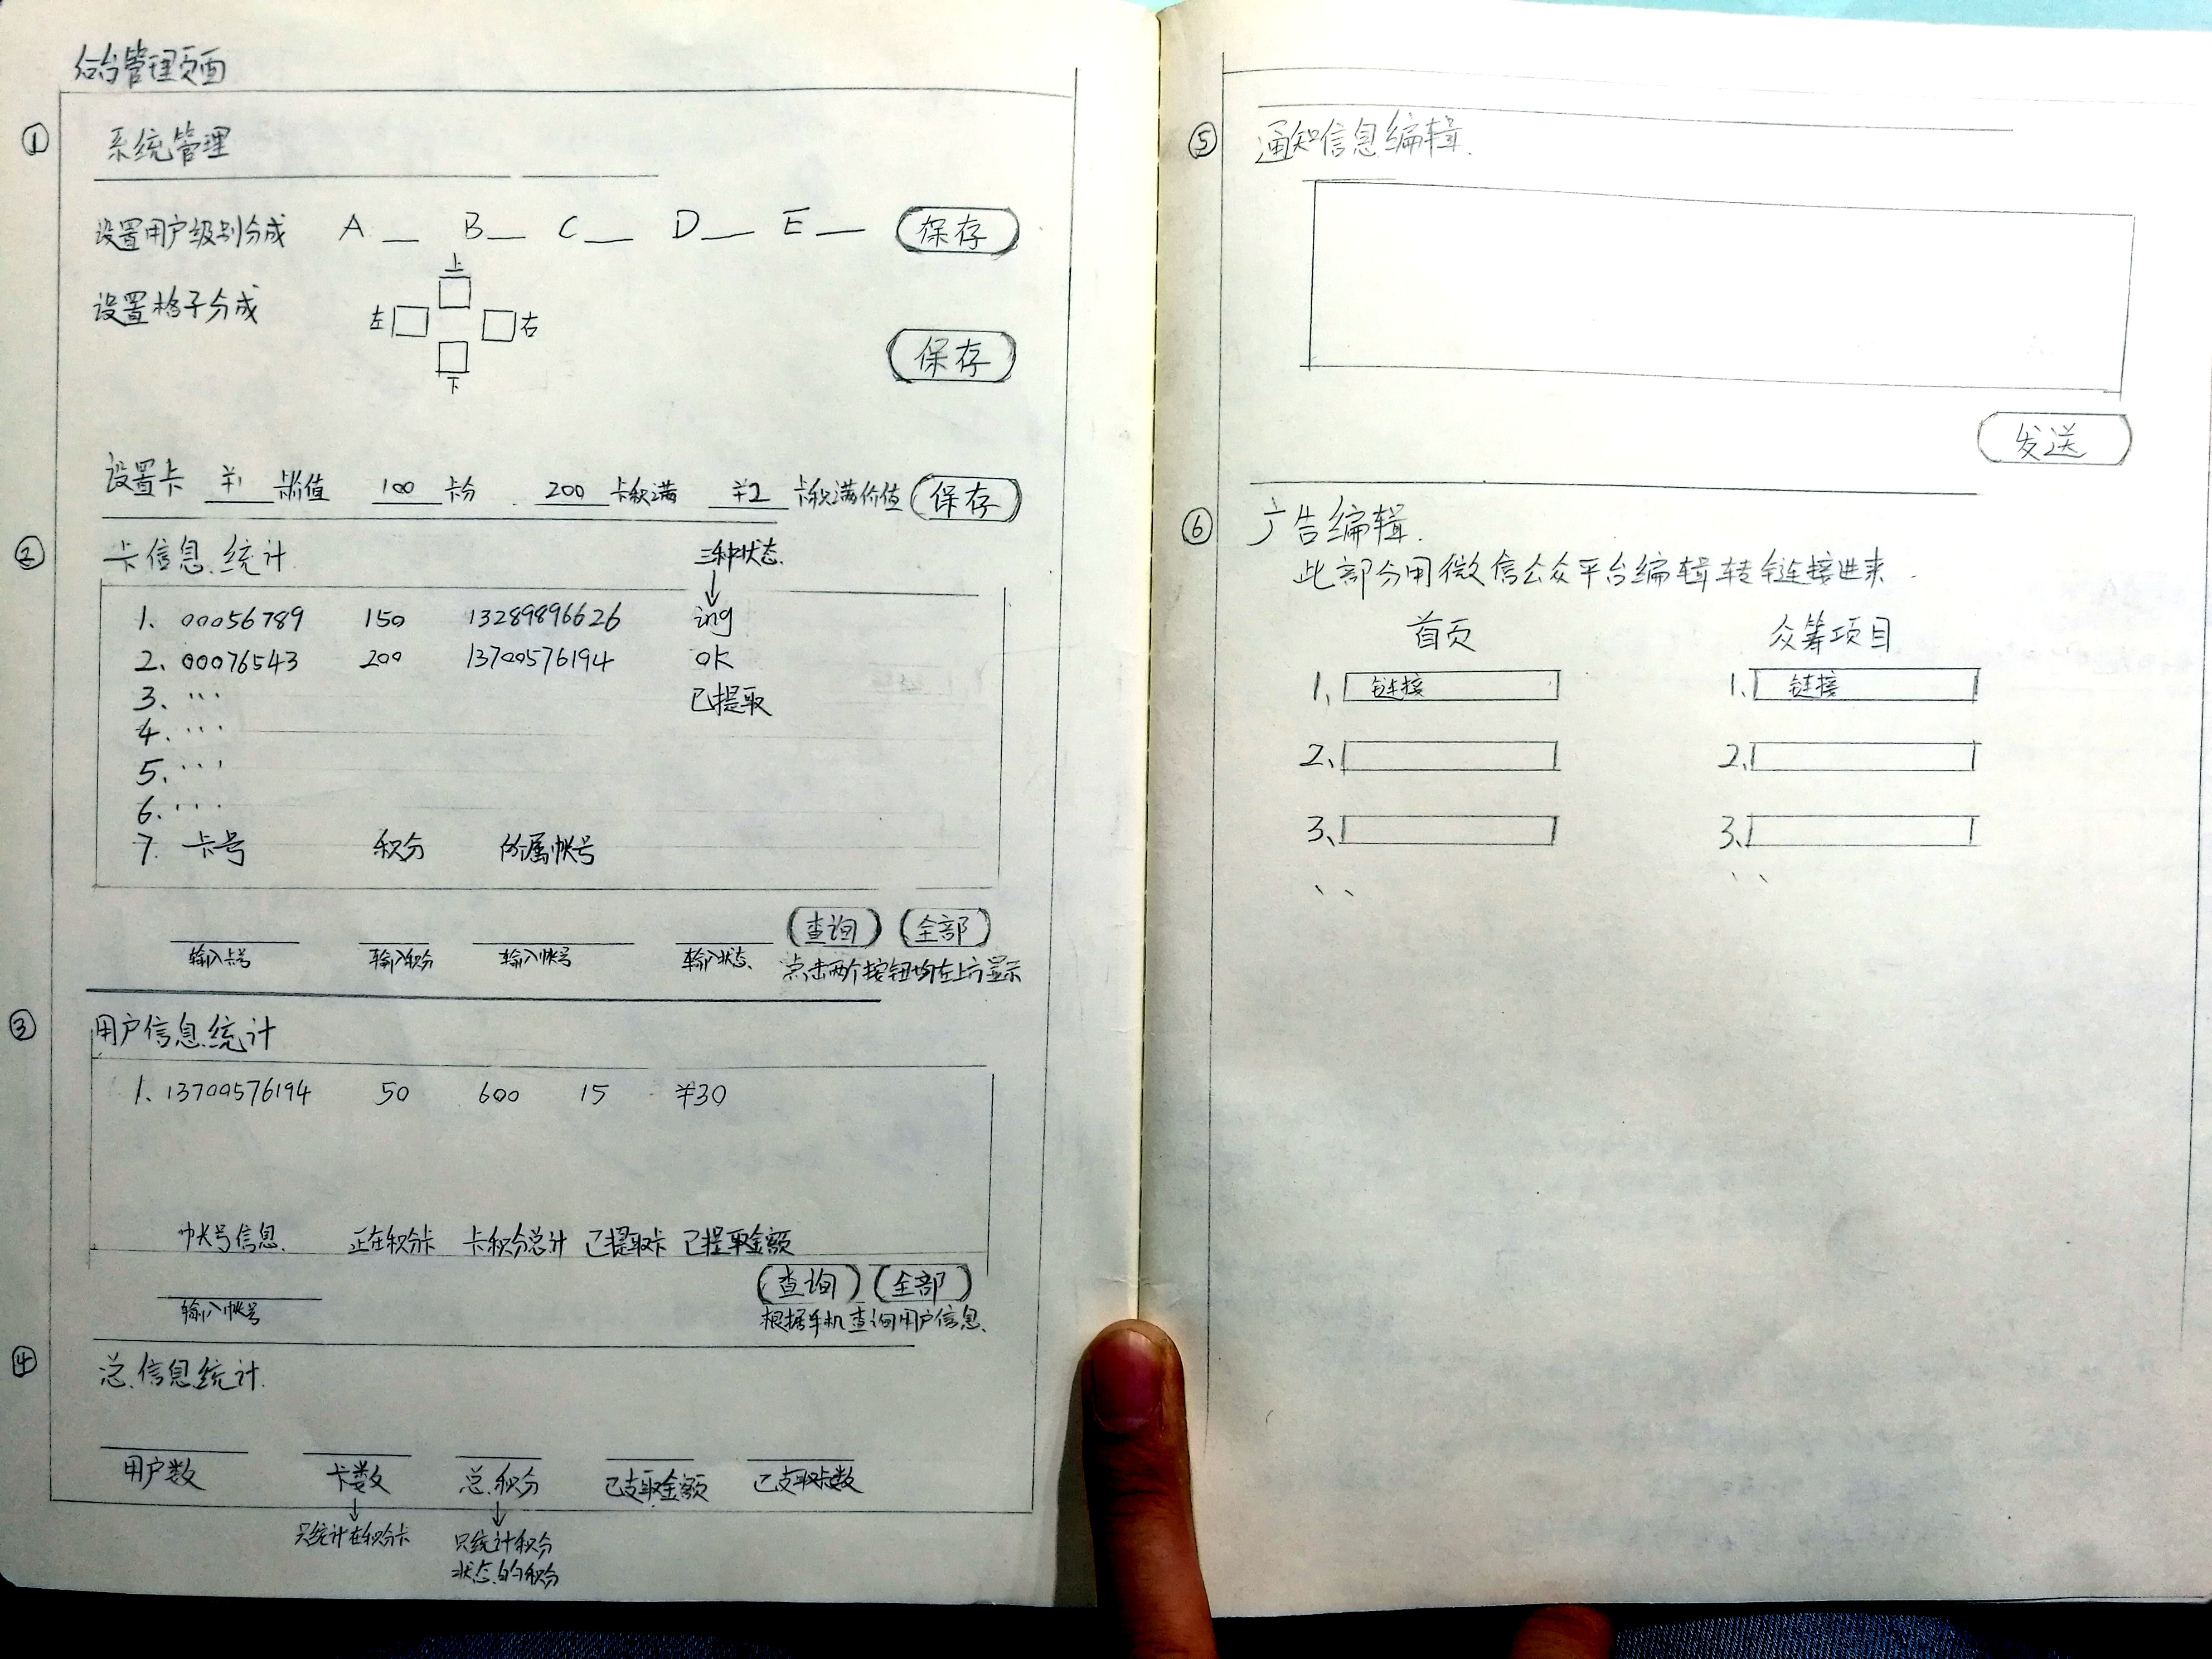 后台管理页面
① 系统管理
设置用户级别分成 A __ B __ C __ D __ E __ 保存
设置格子分成
上
左 右
下
保存
设置卡 ¥1 卡价值 100 卡分 200 卡积满 ¥2 卡积满价值 保存
② 卡信息统计 三种状态
↓
1. 00056789 150 13289896626 ing
2. 00076543 200 13700576194 OK
3. ... 已提取
4. ...
5. ...
6. ...
7. 卡号 积分 所属帐号
查询 全部
输入卡号 输入积分 输入帐号 输入状态 点击两个按钮均在上方显示
③ 用户信息统计
1. 13700576194 50 600 15 ¥30
帐号信息 正在积分卡 卡积分总计 已提取卡 已提取金额
查询 全部
输入帐号 根据手机查询用户信息
④ 总信息统计
用户数 卡数 总积分 已支取金额 已支取卡数
↓ ↓
只统计在积分卡 只统计积分
状态的积分
⑤ 通知信息编辑
发送
⑥ 广告编辑
此部分用微信公众平台编辑转链接进来
首页 众筹项目
1、 链接 1、 链接
2、 2、
3、 3、